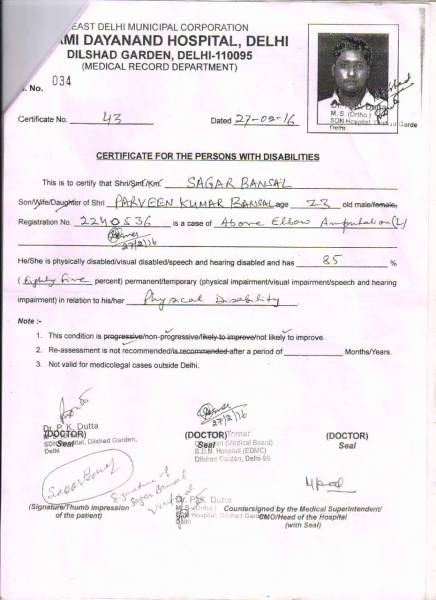 EAST DELHI MUNICIPAL CORPORATION
AMI DAYANAND HOSPITAL, DELHI
DILSHAD GARDEN, DELHI-110095
(MEDICAL RECORD DEPARTMENT)
. No. 034
M. S. (Ortho.)
SDN Hospital, Dilshad Garde
Delhi
Certificate No. 43 Dated 27-02-16
CERTIFICATE FOR THE PERSONS WITH DISABILITIES
This is to certify that Shri/Smt/Km. SAGAR BANSAL
Son/Wife/Daughter of Shri PARVEEN KUMAR BANSAL age 23 old male/female,
Registration No. 2240536 is a case of Above Elbow Amputation (L)
27/2/16
He/She is physically disabled/visual disabled/speech and hearing disabled and has 85 %
(Eighty five percent) permanent/temporary (physical impairment/visual impairment/speech and hearing
impairment) in relation to his/her Physical Disability
Note :-
1. This condition is progressive/non-progressive/likely to improve/not likely to improve.
2. Re-assessment is not recommended/is recommended after a period of Months/Years.
3. Not valid for medicolegal cases outside Delhi.
27/2/16
Dr. P. K. Dutta
(DOCTOR) (DOCTOR) (DOCTOR)
Seal Seal Seal
SDN Hospital, Dilshad Garden,
Delhi
(Medical Board)
S.D.N. Hospital (EDMC)
Dilshad Garden, Delhi-95
Sagar Bansal
Signature of
Sagar Bansal
Dr. P.K. Dutta
M.S. (Ortho.)
Hospital, Dilshad Garden
Delhi
(Signature/Thumb impression
of the patient)
Countersigned by the Medical Superintendent/
CMO/Head of the Hospital
(with Seal)